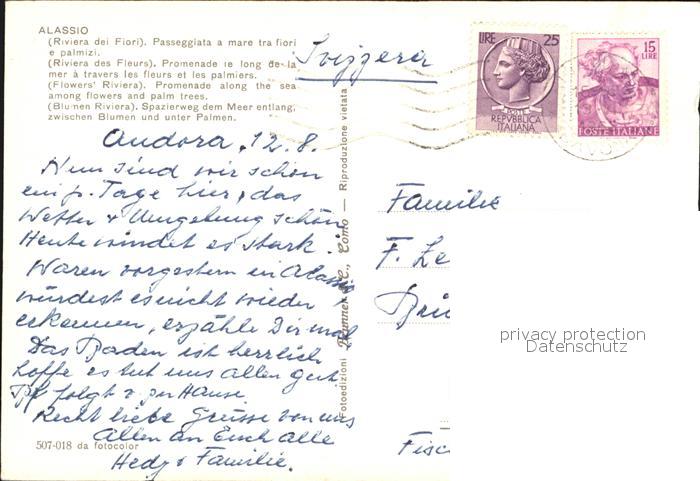 ALASSIO
(Riviera dei Fiori). Passeggiata a mare tra fiori
e palmizi.
(Riviera des Fleurs). Promenade le long de la
mer à travers les fleurs et les palmiers.
(Flowers' Riviera). Promenade along the sea
among flowers and palm trees.
(Blumen Riviera). Spazierweg dem Meer entlang,
zwischen Blumen und unter Palmen.
Svizzera
LIRE 25
REPVBBLICA
ITALIANA
15
LIRE
POSTE ITALIANE
Andora, 12.8.
Nun sind wir schon
ein p. Tage hier, das
Wetter & Umgebung schön
Heute windet es stark.
Waren vorgestern in Alassio
würdest es nicht wieder
erkennen, erzähle Dir mal
Das Baden ist herrlich
hoffe es tut uns allen gut
folgt v. zu Hause.
Recht liebe Grüsse von uns
Allen an Euch alle
Hedy & Familie.
507-018 da fotocolor
Fotoedizioni Brunner & C., Como — Riproduzione vietata
Familie
F. Le
Brü
Fisc
privacy protection
Datenschutz